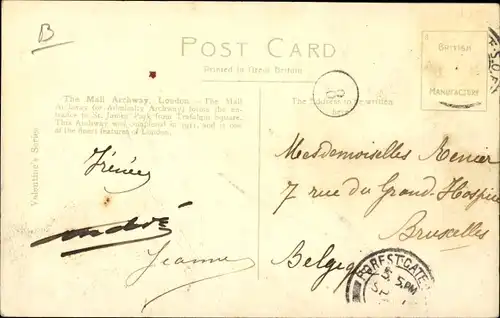 B
POST CARD
Printed in Great Britain
BRITISH
MANUFACTURE
8
The Mall Archway, London. - The Mall
Archway (or Admiralty Archway) forms the en-
trance to St. James' Park from Trafalgar Square.
This Archway was completed in 1911, and is one
of the finest features of London.
The Address to be written
here
Valentine's Series
Irénée
André
Jeanne
Mesdemoiselles Renier
7 rue du Grand-Hospice
Bruxelles
Belgiq
FOREST GATE
5. PM